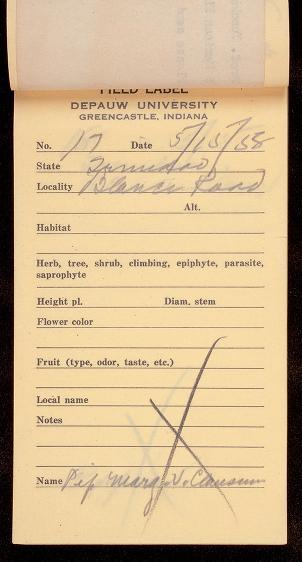 FIELD LABEL
DEPAUW UNIVERSITY
GREENCASTLE, INDIANA
No. 17 Date 5/15/58
State Trinidad
Locality Blanci Road
Alt.
Habitat
Herb, tree, shrub, climbing, epiphyte, parasite,
saprophyte
Height pl. Diam. stem
Flower color
Fruit (type, odor, taste, etc.)
Local name
Notes
Name Pip Marg. V.